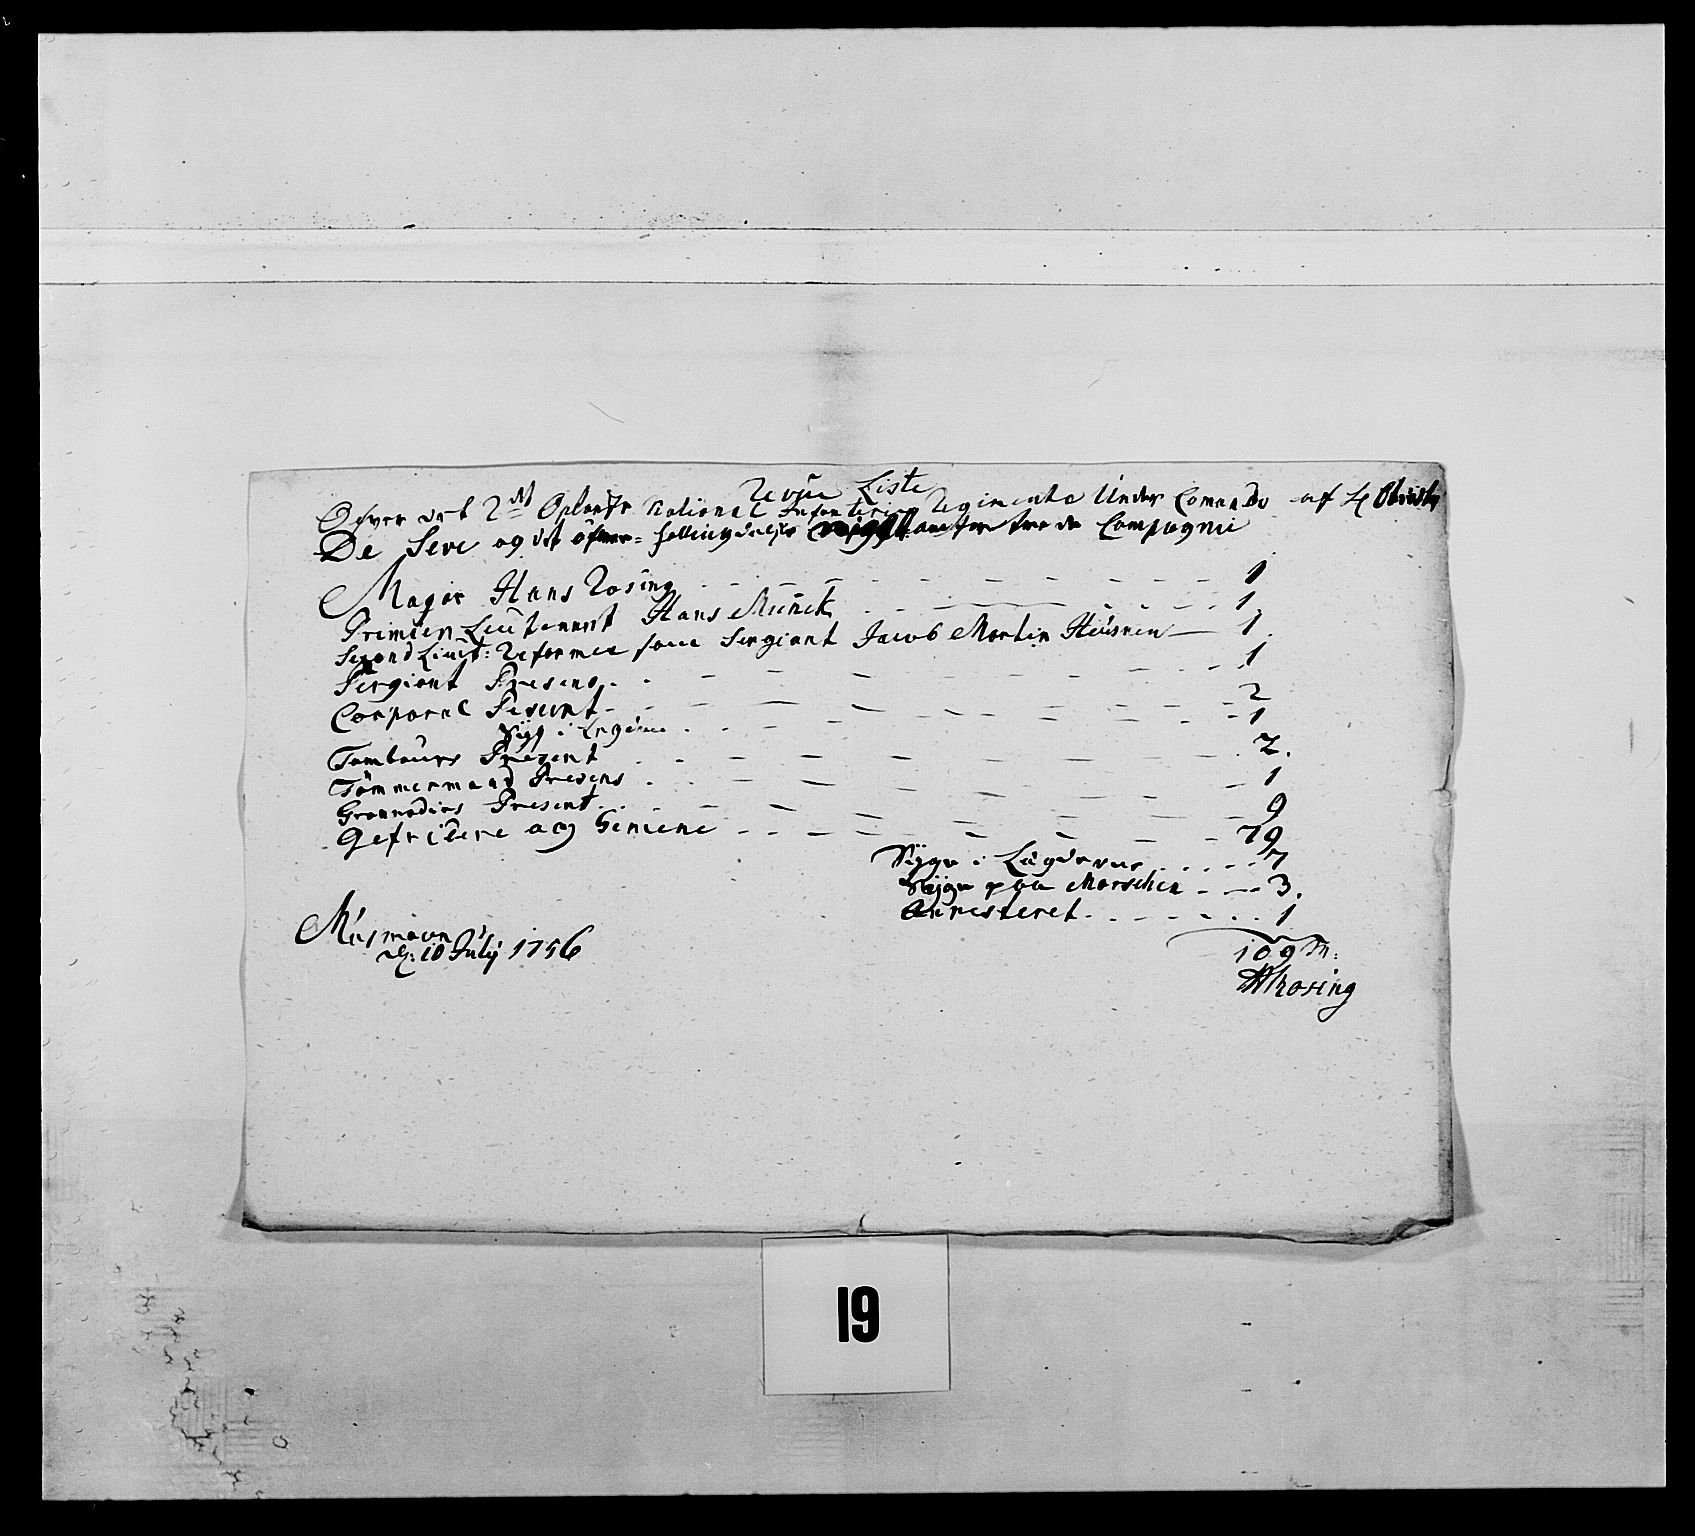 Revue Liste
Ofver det 2det Oplandske National Infanterie Regimente Under Comando af H Obrister
De Seve og det öfver= Hallingdalske Compagnie
Mayor Hans Rosing 1
Premier Lieutenant Hans Munck 1
Second Lieut: Reformee som Sergiant Jacob Martin Heusnen 1
Sergiant Presens 1
Corporal Present 2
Syge i Lægderne 1
Tambours Present 2.
Tömmermand Presens 1
Grannadirs Present 9
Gefriere og Gemene 79
Syge i Lægderne 7
Syge paa Marschen 3.
Arresteret 1
109 M:
HRosing
Musmoen
d: 10 July 1756
19